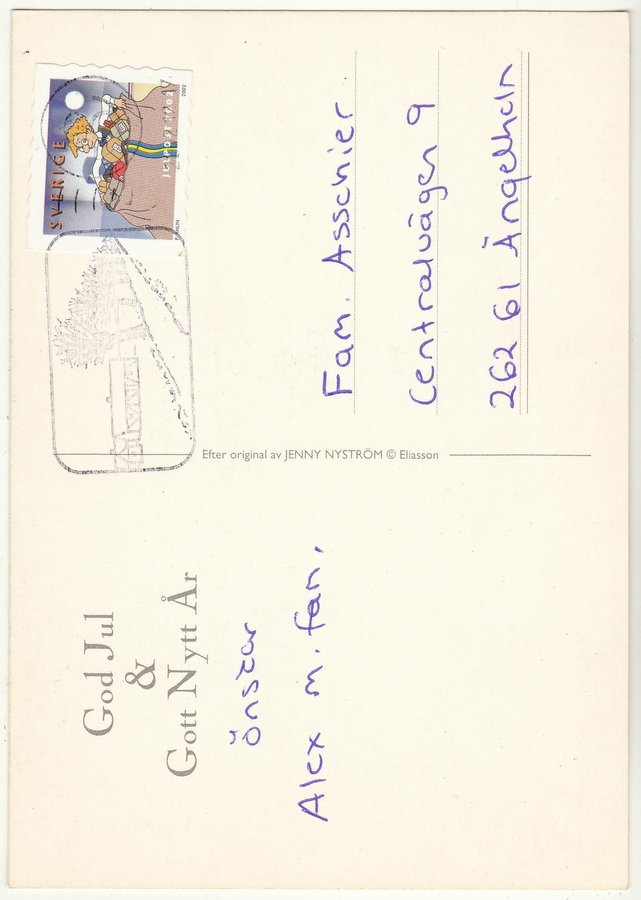 God Jul
&
Gott Nytt År
önskar
Alex m. fam.
Efter original av JENNY NYSTRÖM © Eliasson
SVERIGE
2002
Fam. Asschier
Centralvägen 9
262 61 Ängelholm